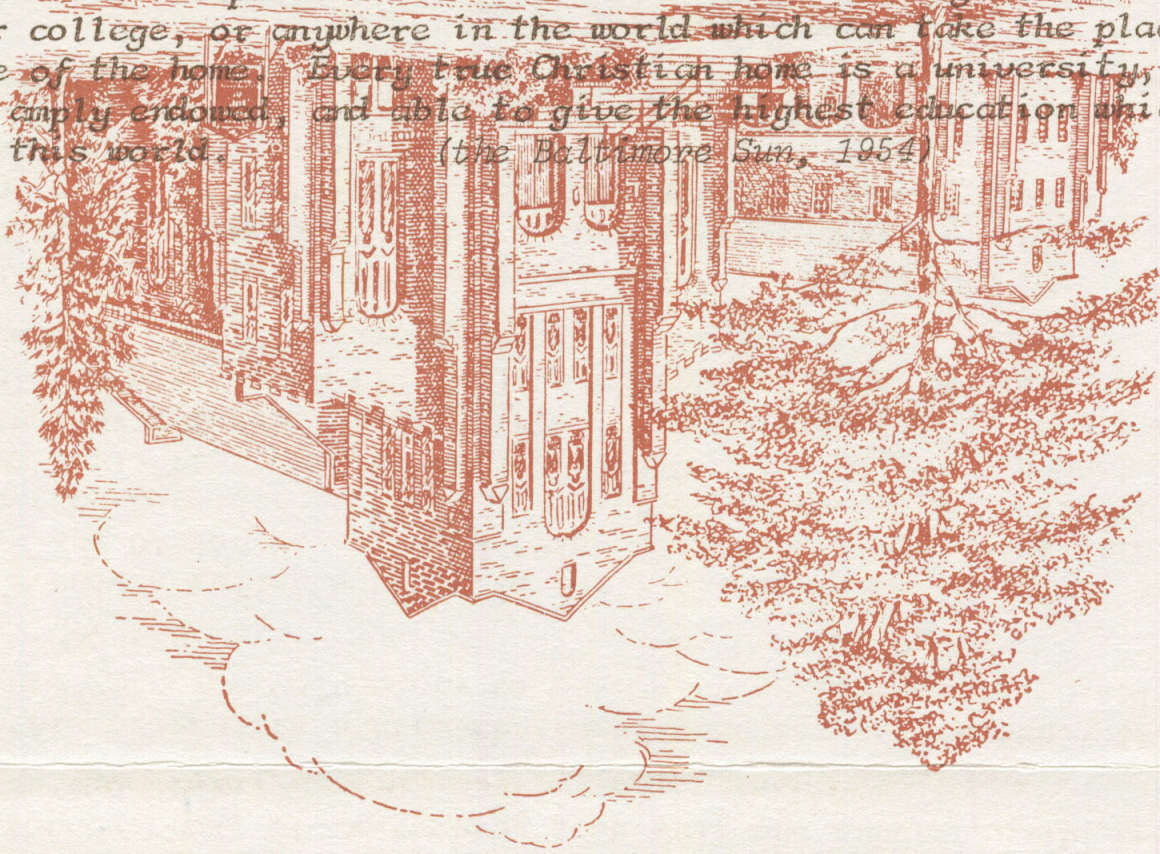 r college, or anywhere in the world which can take the plac
e of the home. Every true Christian home is a university,
amply endowed, and able to give the highest education whi
this world. (the Baltimore Sun, 1954)